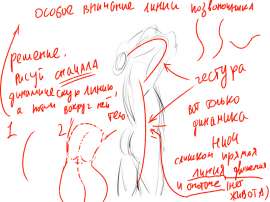 особое внимание линии позвоночника
Решение.
Рисуй сначала
динамическую линию,
а потом вокруг неё
тело
1 2
гестура
вот тело
динамика
слишком прямая
линия движения
и
(нет
живота)